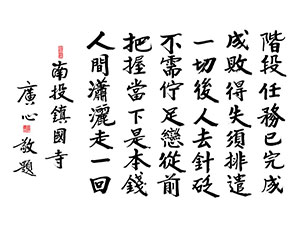 階段任務已完成
成敗得失須排遣
一切後人去針砭
不需佇足戀從前
把握當下是本錢
人間瀟灑走一回
南投鎮國寺
廣心敬題